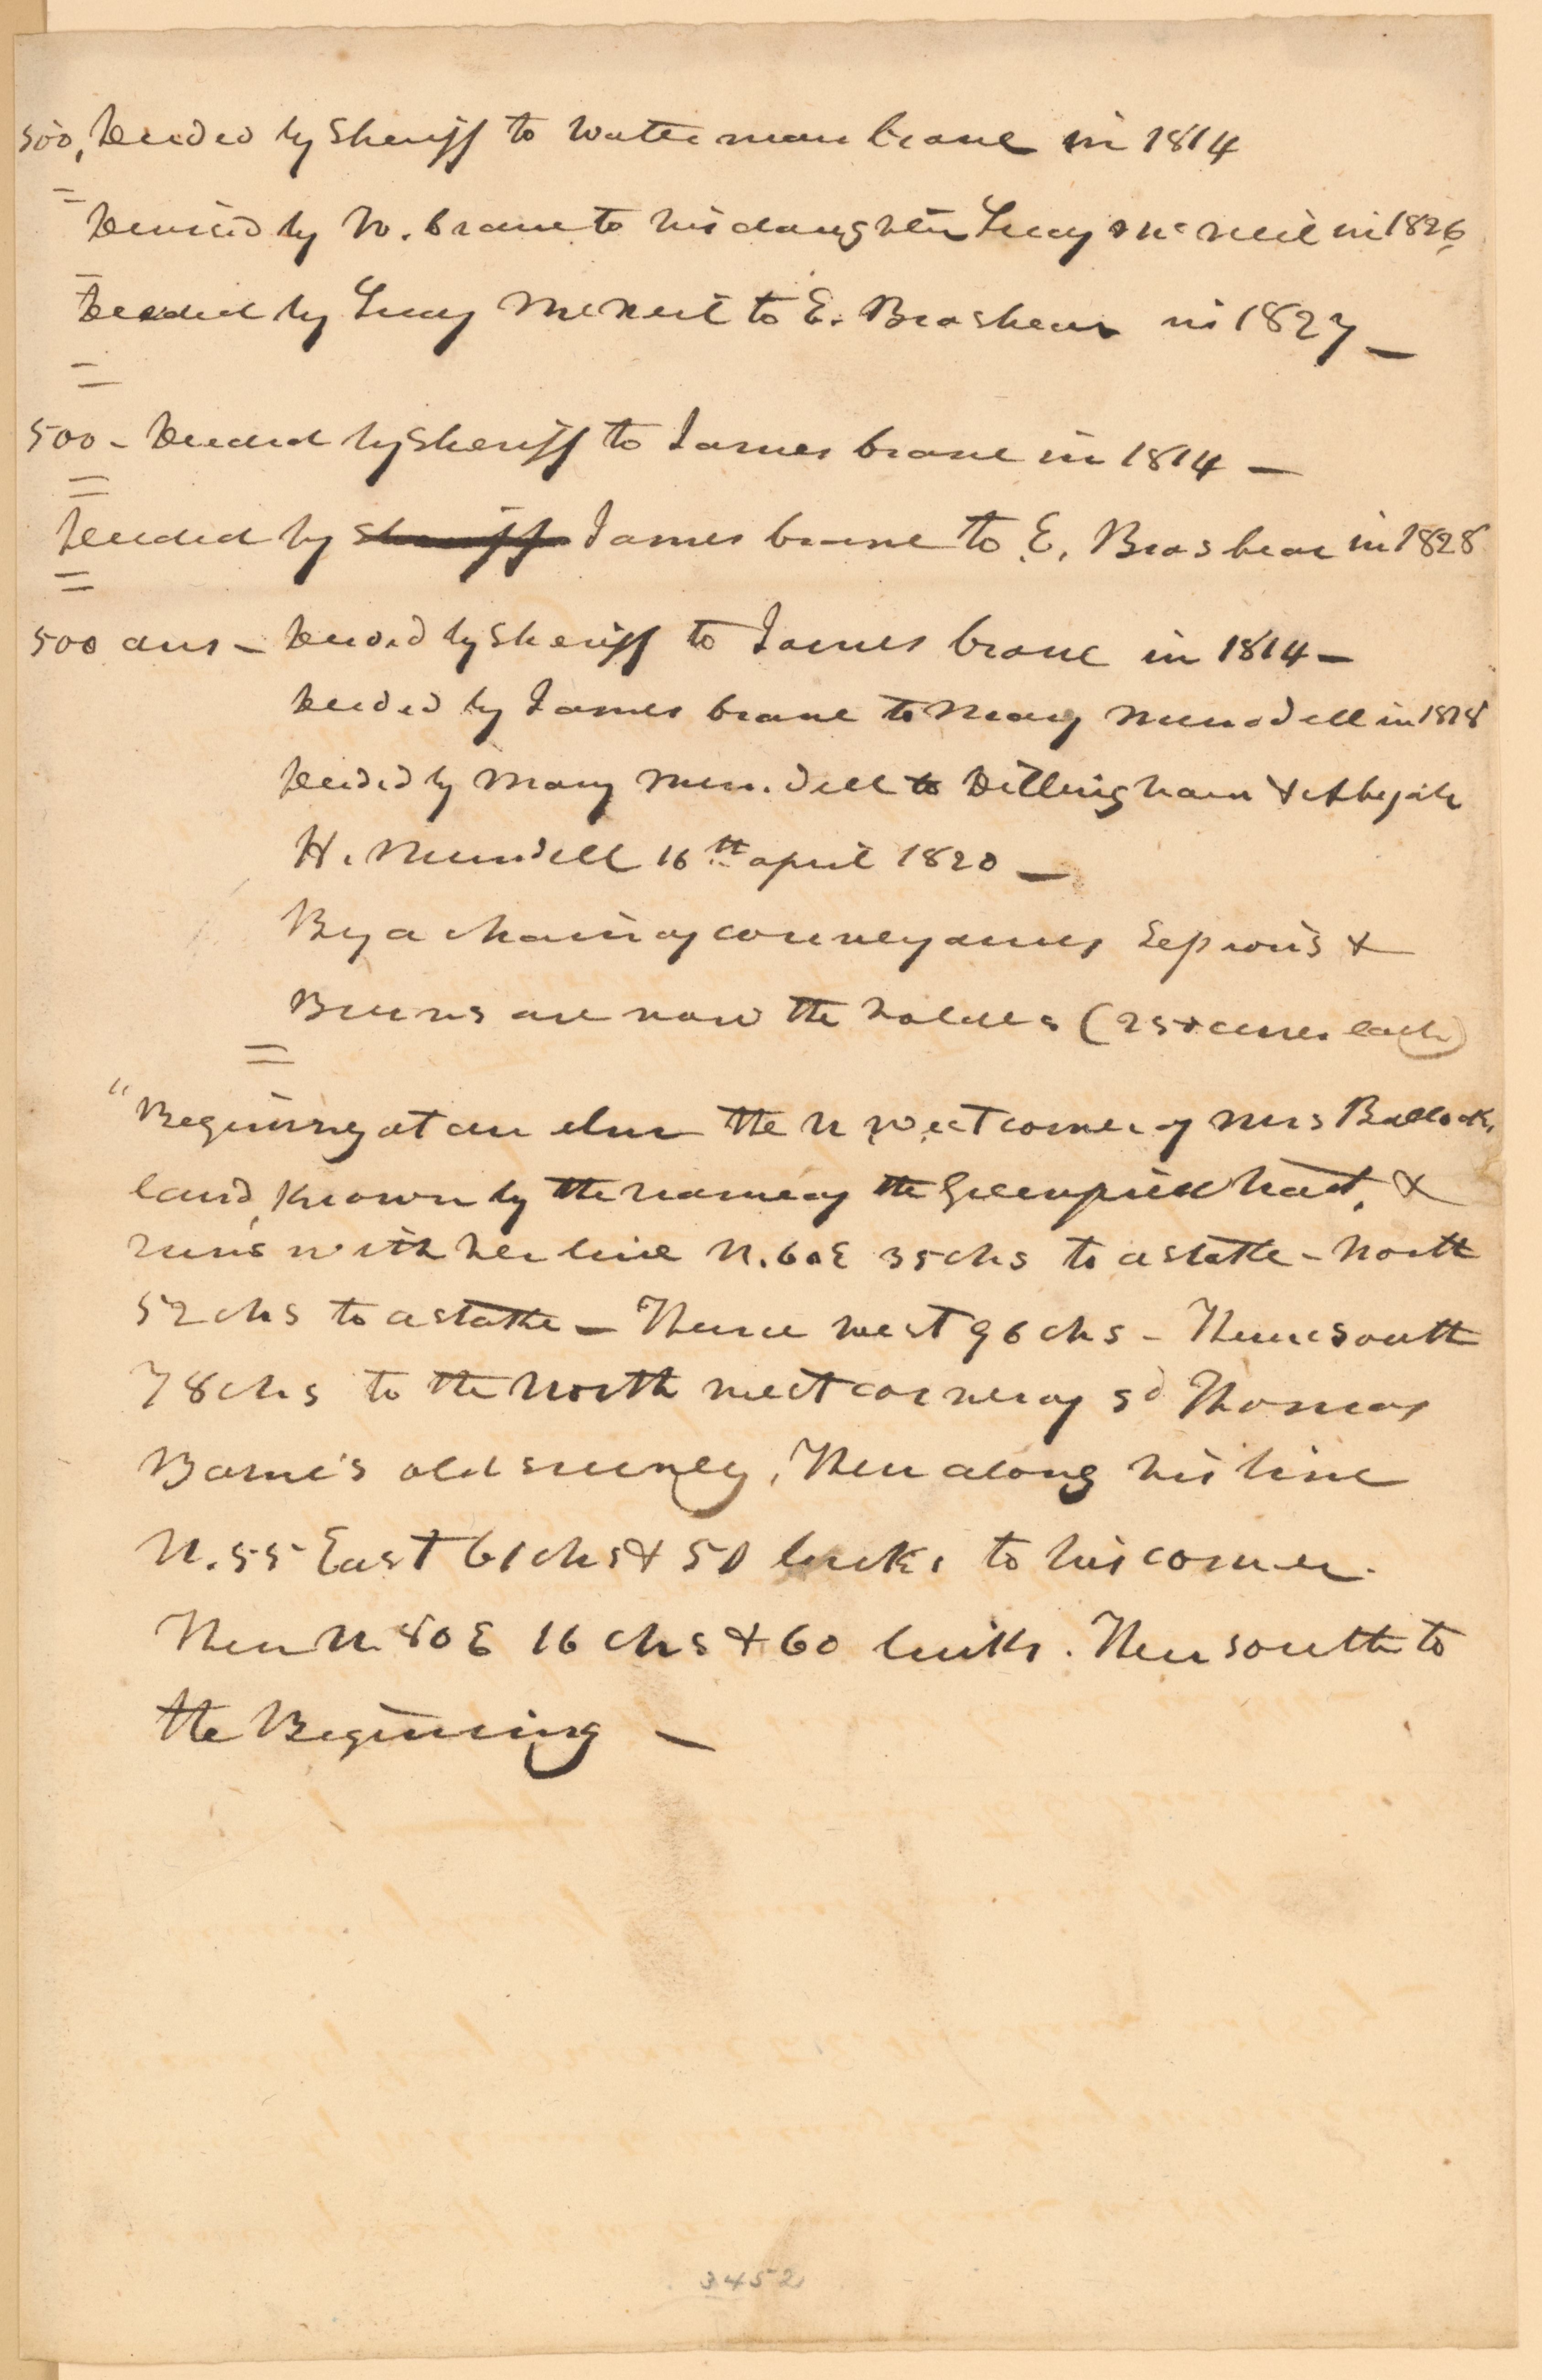 500, Deeded by Sheriff to Waterman Crane in 1814
Devised by W. Crane to his daughter Lucy McNeil in 1826
Deeded by Lucy McNeil to E. Brashear in 1827 —
500 - Deeded by Sheriff to James Crane in 1814 —
Deeded by Sheriff James Crane to E. Brashear in 1828
500 acres - Deeded by Sheriff to James Crane in 1814 —
Deeded by James Crane to Mary Mundell in 1818
Deeded by Mary Mundell to Dillingham & Abijah
H. Mundell 16th april 1820 —
By a chain of conveyances &
Burns are now the holders (250 acres each)
"Beginning at an elm the N West corner of Mrs Bullock,
land, known by the name of the tract, &
runs with her line N. 60 E 35 chs to a stake - North
52 chs to a stake — Thence west 96 chs - Thence south
78 chs to the North west corner of sd Thomas
Barne's old survey, Then along his line
N. 55 East 61 chs & 50 links to his corner.
Then N. 80 E 16 chs & 60 links. Then south to
the Beginning —
3452